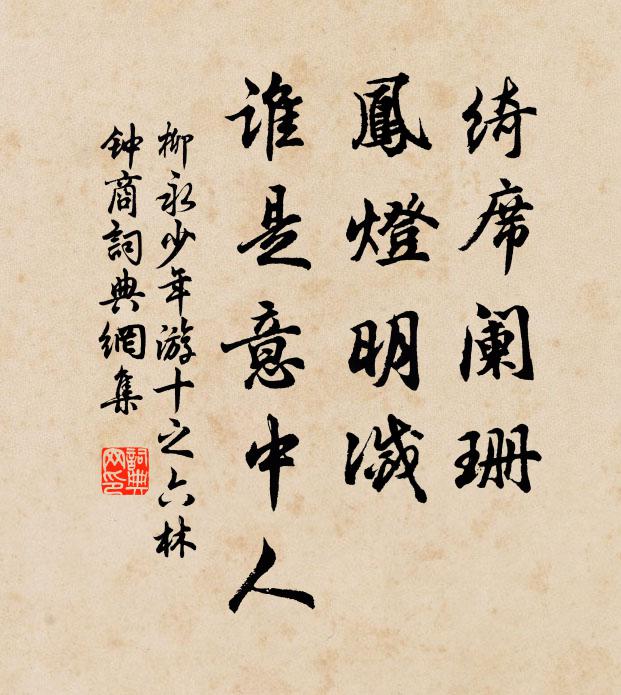 绮席阑珊
鳳燈明滅
谁是意中人
柳永少年游十之六林
钟商詞典網集
詞典
网印